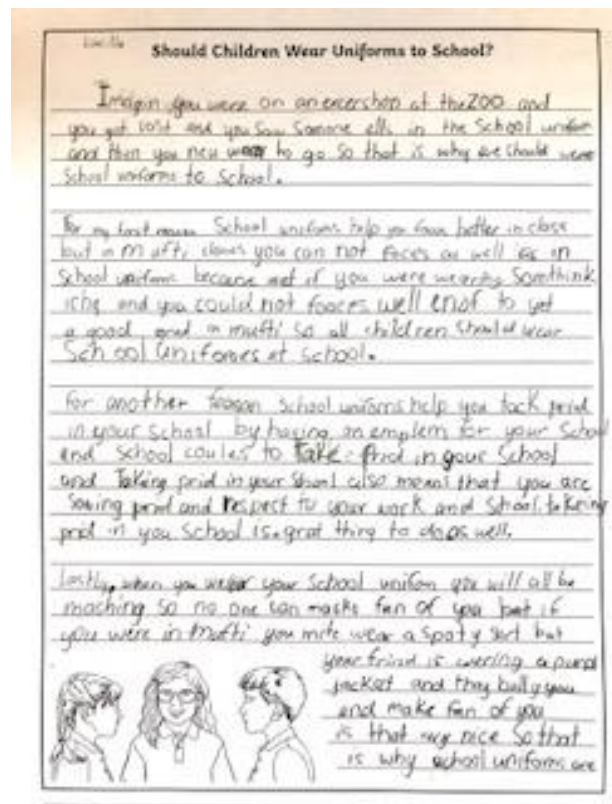 Should Children Wear Uniforms to School?
Imagin you were on an excershon at the ZOO and
you got lost and you saw somone ells in the school unifom
and then you new to go so that is why we should were
school uniforms to school.
For my first reason School uniforms help you focus better in class
but in mufti you can not foces as well as in
school uniforms because if you were wearing Somthink
ichy and you could not foces well enof to get
a good grad in mufti so all children should wear
School Uniformes at school.
For another reason school uniforms help you tack prid
in your school by having an emplem for your School
and school coules to Take Prid in your School
and Taking prid in your also means that you are
Soing prid and respect to your work and School. takeing
prid in you School is a grat thing to do as well.
Lastly, when you wear your school unifom you will all be
maching so no one can macke fun of you but if
you were in mufti you mite wear a spoty but
your frind is wering a
jacket and they bully you
and make fan of you
is that nice So that
is why school uniforms are